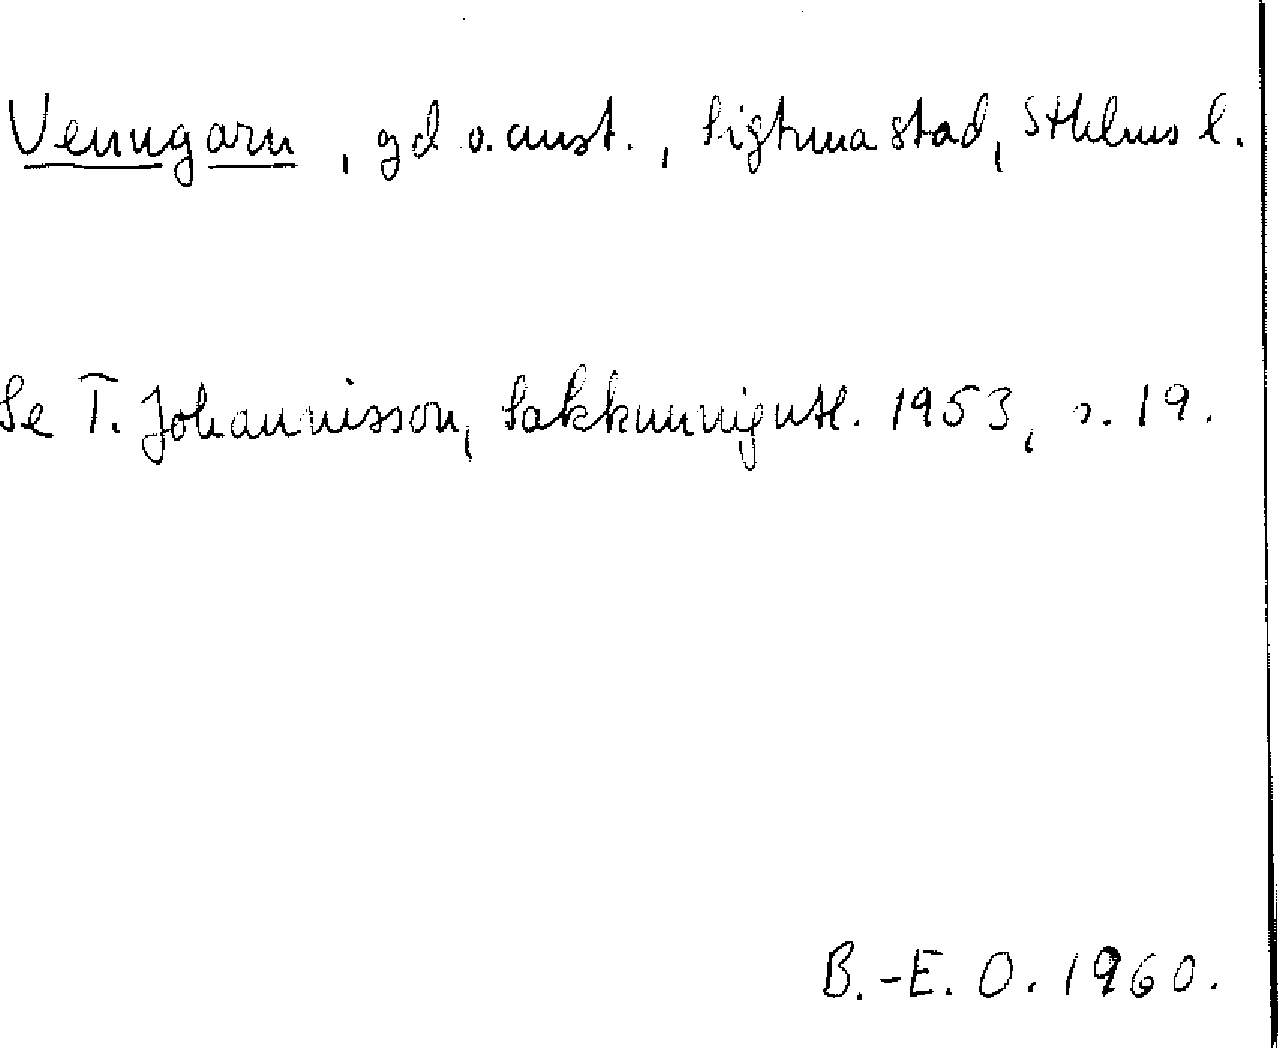 Venngarn, gd o. anst., Sigtuna stad, Sthlms l.
Se T. Johannisson, Sakkunnigutl. 1953, s. 19.
B.-E. O. 1960.